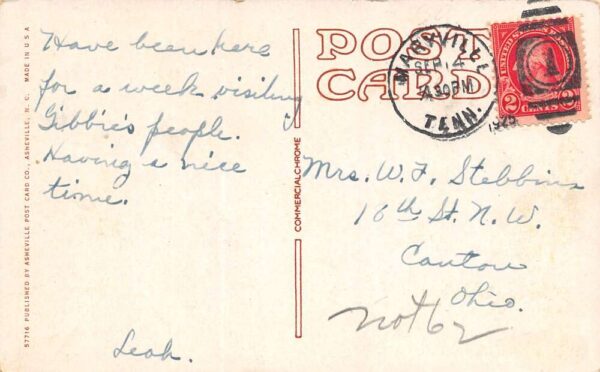 Have been here
for a week visiting
Gibbie's people.
Having a nice
time.
Leah.
57716 PUBLISHED BY ASHEVILLE POST CARD CO., ASHEVILLE, N. C. MADE IN U.S.A
COMMERCIALCHROME
POST
CARD
MARYVILLE
SEP 14
30PM
TENN.
1925
UNITED STATES
2 CENTS 2
Mrs. W. F. Stebbins
16th St. N. W.
Canton
Ohio.
not 62